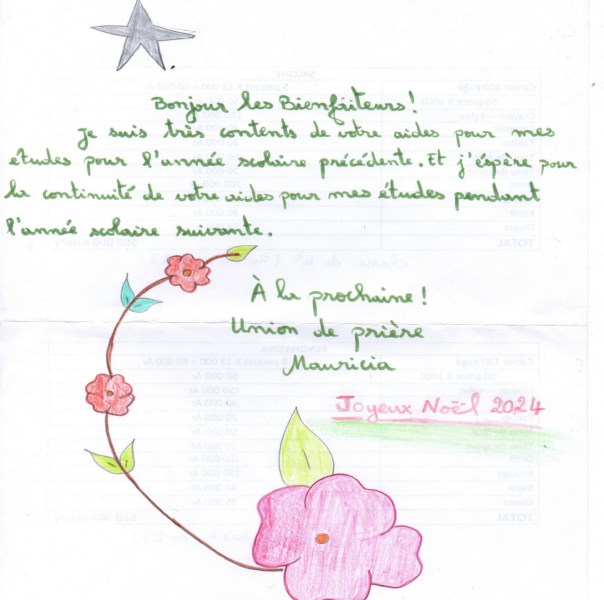 Bonjour les Bienfaiteurs !
Je suis très contents de votre aides pour mes
études pour l'année scolaire précédente. Et j'éspère pour
la continuité de votre aides pour mes études pendant
l'année scolaire suivante.
À la prochaine !
Union de prière
Mauricia
Joyeux Noël 2024